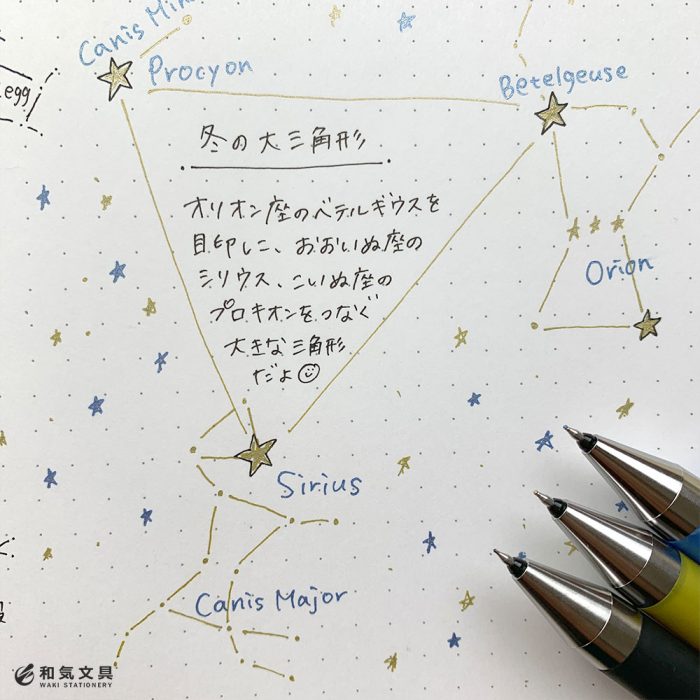 Canis Min
Procyon
Betelgeuse
egg
冬の大三角形
オリオン座のベテルギウスを
目印に、おおいぬ座の
シリウス、こいぬ座の
プロキオンをつなぐ
大きな三角形
だよ
Orion
Sirius
Canis Major
和気文具
WAKI STATIONERY